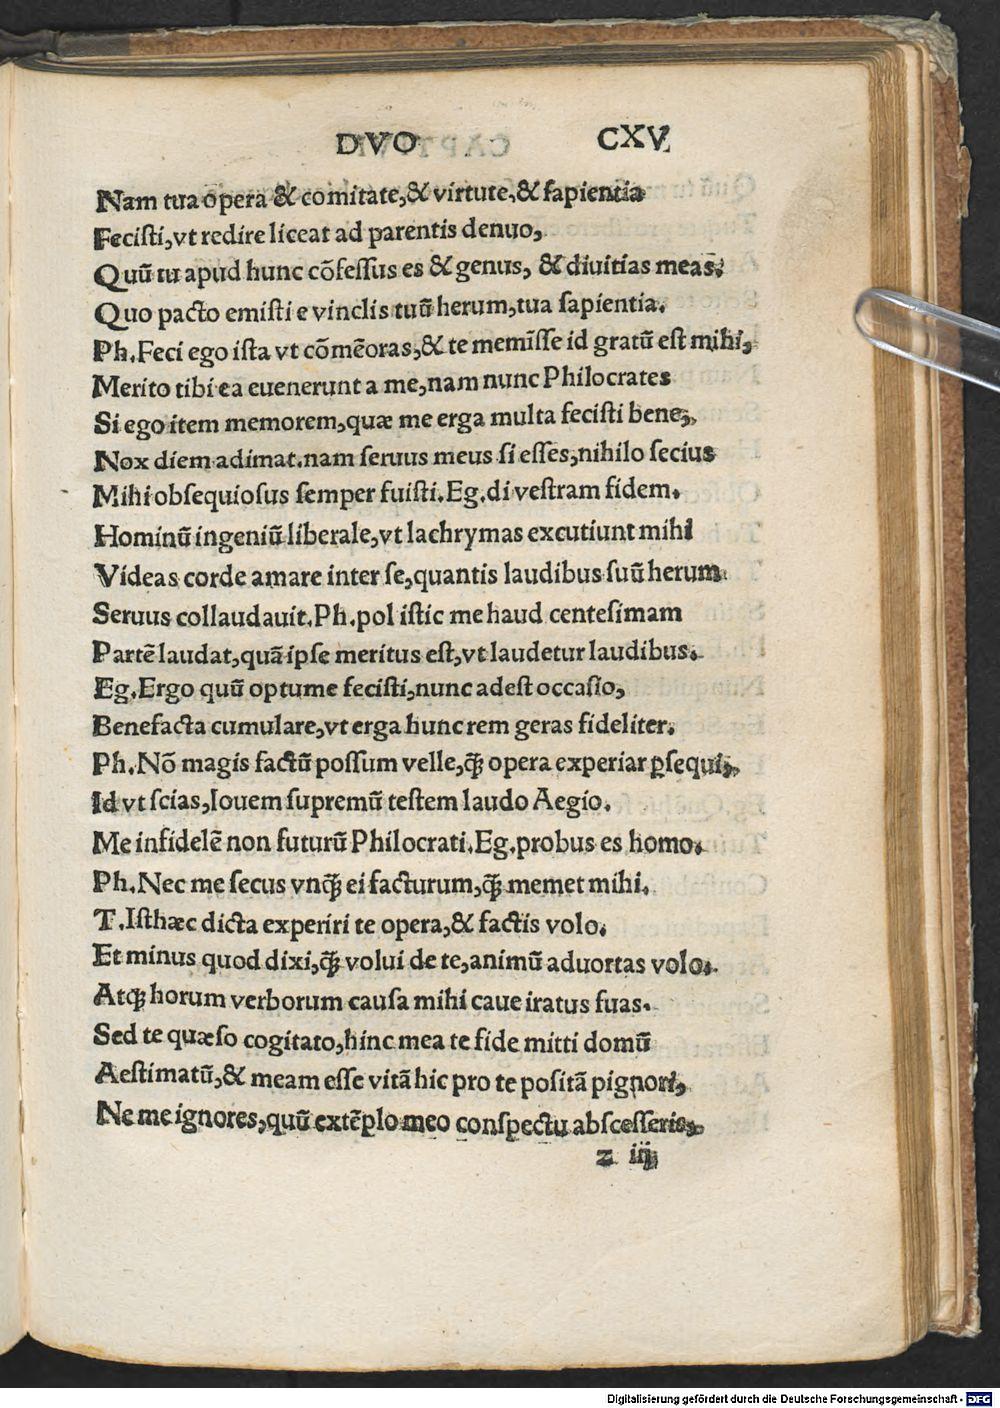 DVO CXV
Nam tua opera & comitate,& virtute,& ſapientia
Feciſti,vt redire liceat ad parentis denuo,
Quū tu apud hunc cōfeſſus es & genus, & diuitias meas.
Quo pacto emiſti e vinclis tuū herum,tua ſapientia.
Ph.Feci ego iſta vt cōmēoras,& te memīſſe id gratū eſt mihi,
Merito tibi ea euenerunt a me,nam nunc Philocrates
Si ego item memorem,quæ me erga multa feciſti bene,
Nox diem adimat.nam ſeruus meus ſi eſſes,nihilo ſecius
Mihi obſequioſus ſemper fuiſti.Eg.di veſtram fidem.
Hominū ingeniū liberale,vt lachrymas excutiunt mihi
Videas corde amare inter ſe,quantis laudibus ſuū herum
Seruus collaudauit.Ph.pol iſtic me haud centeſimam
Partē laudat,quā ipſe meritus eſt,vt laudetur laudibus.
Eg.Ergo quū optume feciſti,nunc adeſt occaſio,
Benefacta cumulare,vt erga hunc rem geras fideliter.
Ph.Nō magis factū poſſum velle,ꝙ̃ opera experiar ꝑſequi,
Id vt ſcias,Iouem ſupremū teſtem laudo Aegio.
Me infidelē non futurū Philocrati.Eg.probus es homo.
Ph.Nec me ſecus vnꝙ̃ ei facturum,ꝙ̃ memet mihi.
T.Iſthæc dicta experiri te opera,& factis volo.
Et minus quod dixi,ꝙ̃ volui de te,animū aduortas volo.
Atꝙ horum verborum cauſa mihi caue iratus fuas.
Sed te quæſo cogitato,hinc mea te fide mitti domū
Aeſtimatū,& meam eſſe vitā hic pro te poſitā pignori,
Ne me ignores,quū extēplo meo conſpectu abſceſſeris,
z iij
Digitalisierung gefördert durch die Deutsche Forschungsgemeinschaft - DFG